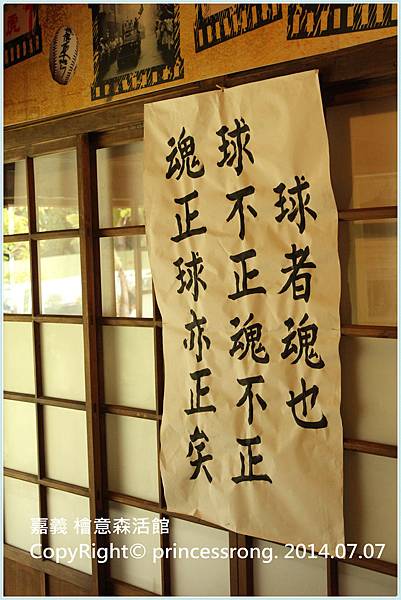 球者魂也
球不正魂不正
魂正球亦正矣
嘉義 檜意森活館
CopyRight© princessrong. 2014.07.07